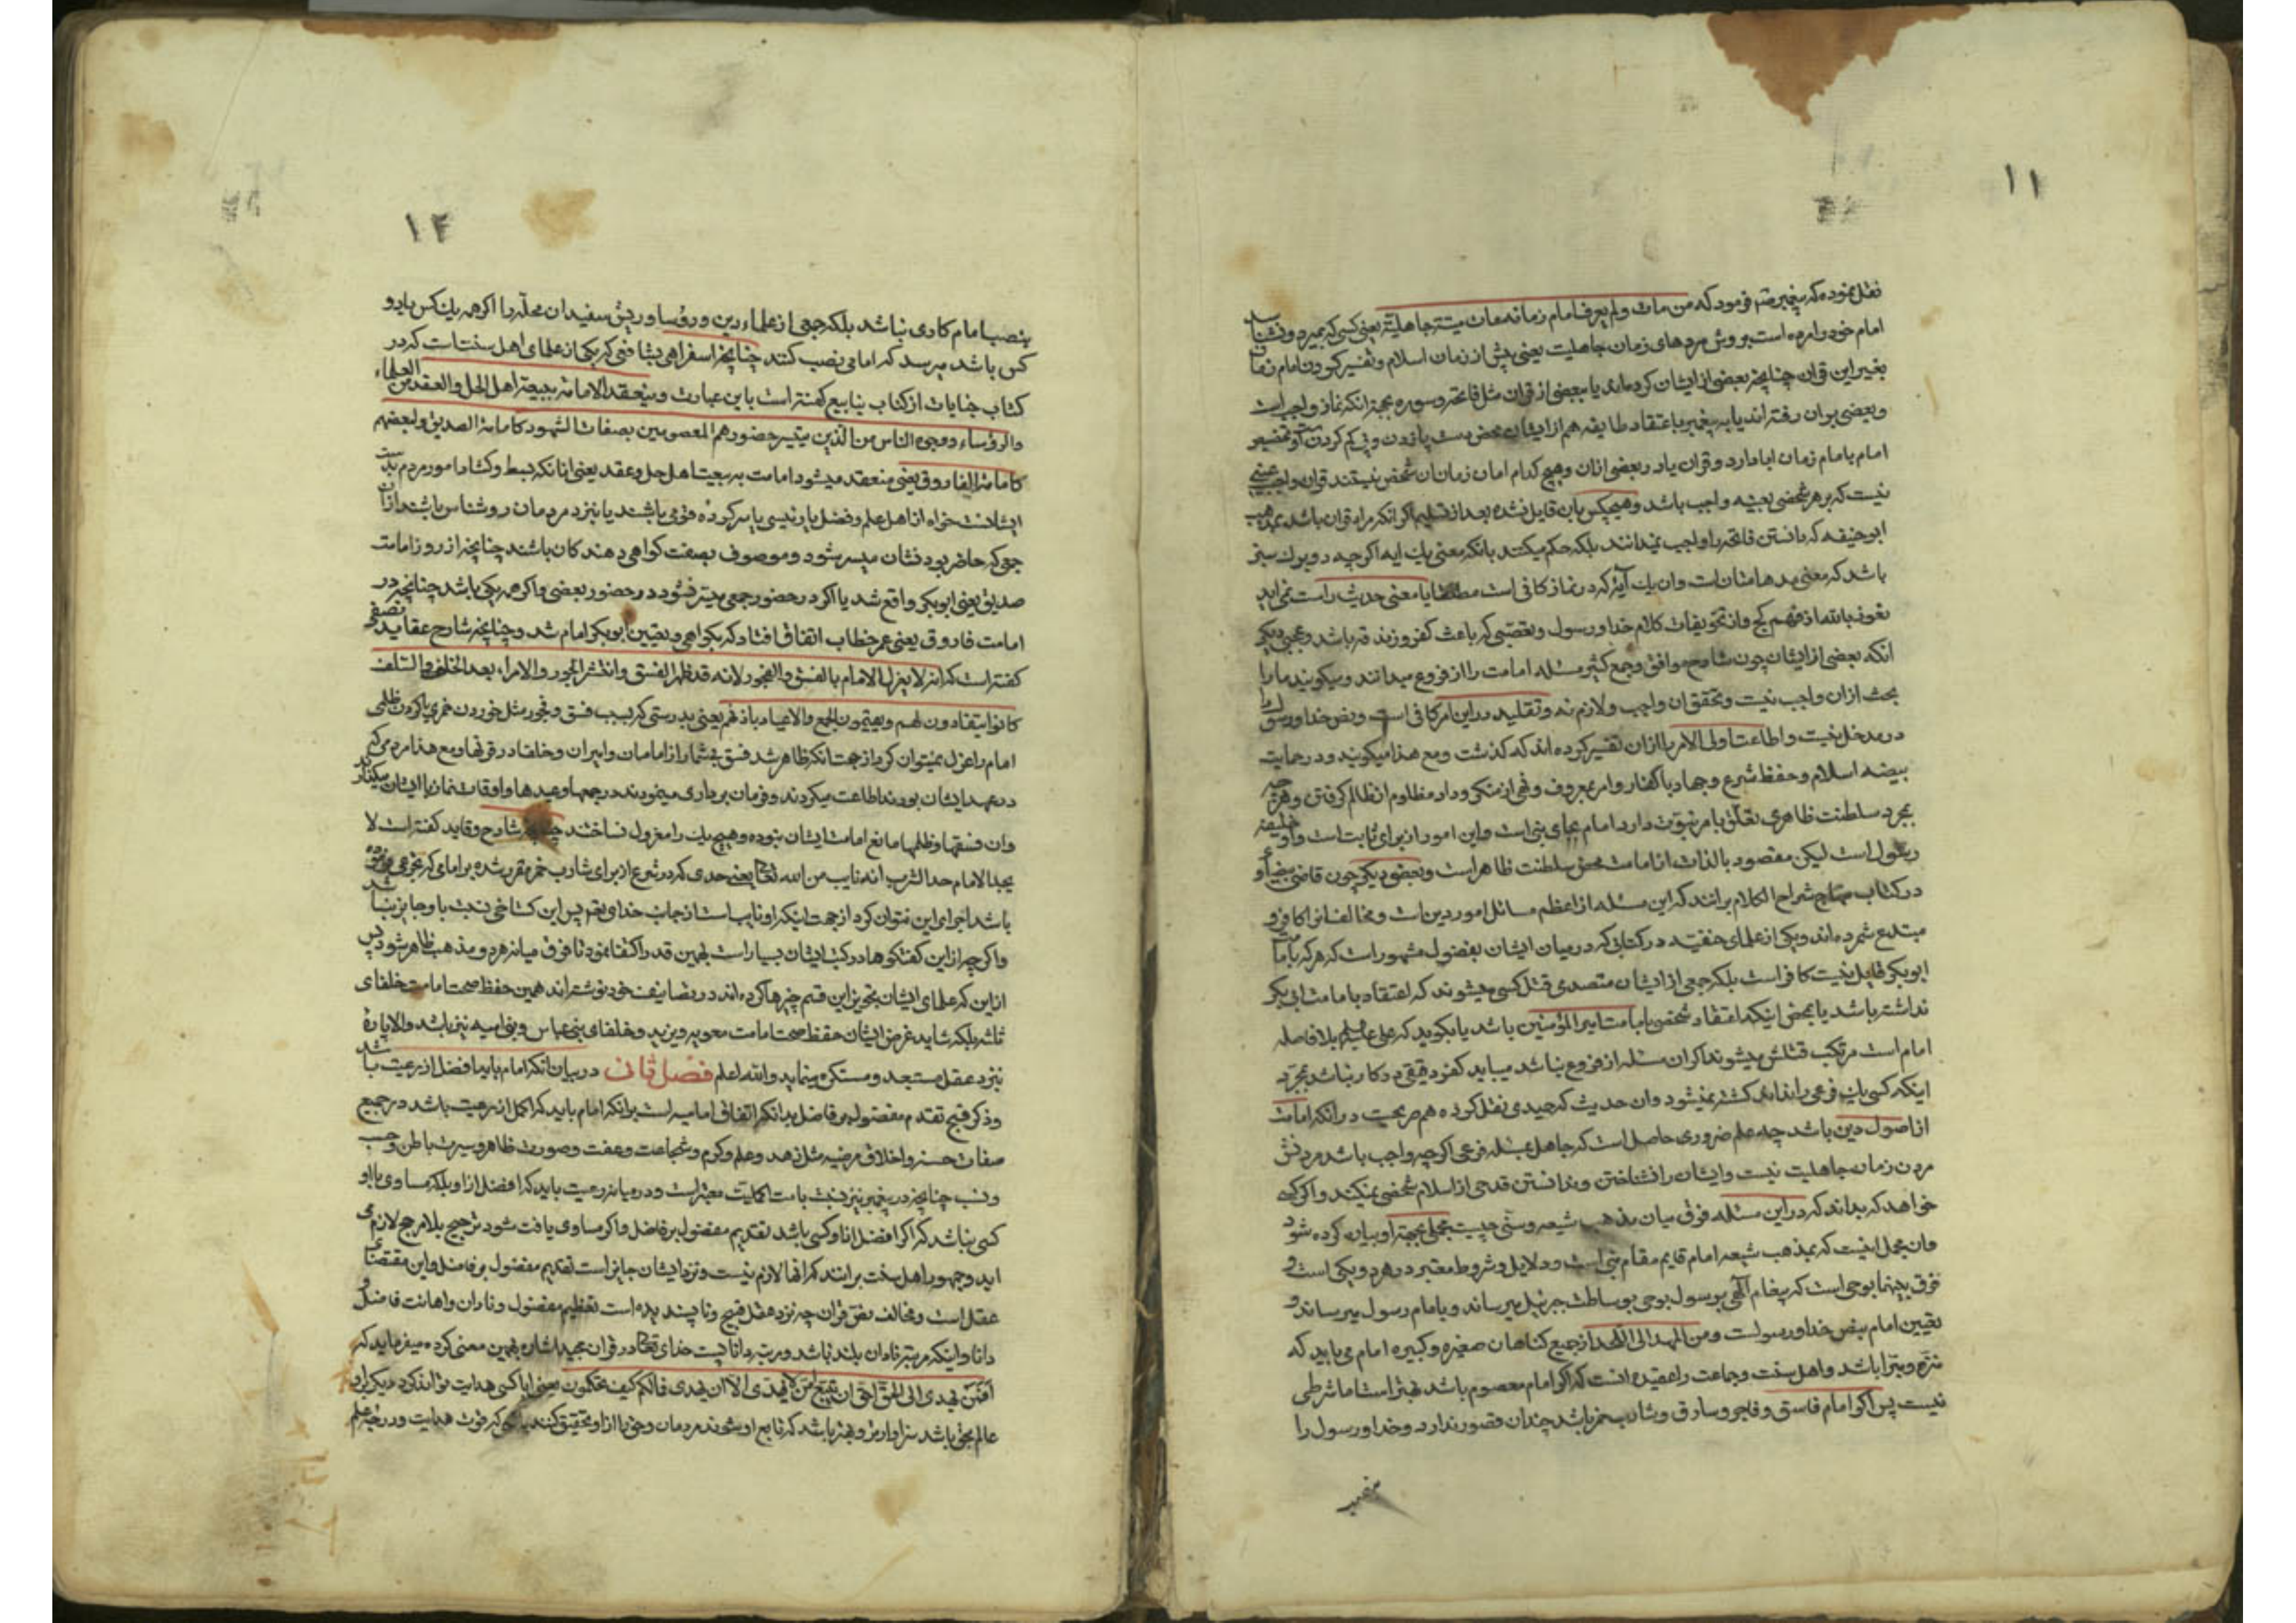 ۱۱
نقل نموده که پیغمبر صم فرمود که من مات و لم یعرف امام زمانه مات میتة جاهلیة یعنی کسی که بمیرد و نشناسد
امام خود را مرده است بروش مردهای زمان جاهلیت یعنی پیش از زمان اسلام و تفسیر کردن امام زمان
بغیر این قران چنانچه بعضی از ایشان کرده اند یا بعضی از قران مثل فاتحه و سوره بجهة انکه نماز واجب است
و بعضی بران رفته اند یا به پیغمبر باعتقاد طایفه هم از ایشان محض دست و پا زدن و پی کم کردن است و تفسیر
امام بامام زمان ابا دارد و قران یا در بعضی ازان و هیچ کدام امان زمان ان شخص نیستند قران واجب عینی
نیست که بر هر شخصی بعینه واجب باشد و هیچکس بان قایل نشده بعد از تسلیم اکر انکه مراد قران باشد بمذهب
ابو حنیفه که دانستن فاتحه را واجب نمیدانند بلکه حکم میکنند بانکه معنی یک ایه اکرچه دو برک سبز
باشد که معنی مدهامتان است وان یک آیه که در نماز کافی است مطلقا یا معنی حدیث راست نمی اید
نعوذ بالله از فهم کج و از تحویفات کلام خدا و رسول و تعصبی که باعث کفر و زندقه باشد و عجبی دیکر
انکه بعضی از ایشان چون شارح مواقف و جمع کثیر مسئله امامت را از فروع میدانند و میکویند مارا
بحث ازان واجب نیست و تحقق ان واجب و لازم نه و تقلید در این امر کافی است و نص خدا و رسول را
در مدخل نیست و اطاعت اولی الامر را ازان تفسیر کرده اند که کذشت و مع هذا میکویند و در حمایت
بیضه اسلام و حفظ شرع و جهاد با کفار و امر بمعروف و نهی از منکر و داد مظلوم از ظالم کرفتن و هر چه
بمجرد سلطنت ظاهری تعلق بامر نبوت دارد امام بجای نبی است و این امور از برای ثابت است و او خلیفه
رسول است لیکن مقصود بالذات از امامت محض سلطنت ظاهر است و بعضی دیکر چون قاضی بیضاوی
در کتاب منهاج شراح الکلام برانند که این مسئله از اعظم مسائل امور دین است و مخالف انرا کافر و
مبتدع شمرده اند و یکی از علمای حنفیه در کتابی که در میان ایشان بفضول مشهور است که هر که بامامت
ابوبکر قایل نیست کافر است بلکه جمعی از ایشان متصدی قتل کسی میشوند که اعتقاد بامامت ابی بکر
نداشته باشد یا بمحض اینکه اعتقاد شخص بامامت امیرالمؤمنین باشد یا بکوید که علی علیه السلم بلا فاصله
امام است مرتکب قتلش میشوند اکر ان مسئله از فروع نباشد میباید کفر و قتلی در کار نباشد بمجرد
اینکه کسی یک فرعی را نداند کشته نمیشود وان حدیث که حمیدی نقل کرده هم صریحست در انکه امامت
از اصول دین باشد چه علم ضروری حاصل است که جاهل بمسئله فرعی اکرچه واجب باشد مردنش
مردن زمان جاهلیت نیست و ایشان را نشناختن و ندانستن قدحی از اسلام شخصی نمیکند و اکر کسی
خواهد که بداند که در این مسئله فرق میان مذهب شیعه و سنی چیست مجملی بجهة او بیان کرده شود
وان مجمل اینست که بمذهب شیعه امام قایم مقام نبی است و دلایل و شروط معتبر در هر دو یکی است و
فرق بینهما بوحی است که پیغام آلهی برسول بوحی بوساطت جبرئیل میرساند و بامام رسول میرساند و
تعیین امام بنص خدا و رسولست و من المهد الی اللحد از جمیع کناهان صغیره و کبیره امام می باید که
منزه و مبرا باشد و اهل سنت و جماعت را عقیده انست که اکر امام معصوم باشد بهتر است اما شرطی
نیست پس اکر امام فاسق و فاجر و سارق و شارب خمر باشد چندان قصور ندارد و خدا و رسول را
۱۲
بنصب امام کاری نباشد بلکه جمعی از علماء دین و رؤسا و ریش سفیدان محله را اکر همه یک کس یا دو
کس باشد میرسد که امامی نصب کنند چنانچه اسفراهی شافعی که یکی از علمای اهل سنت است که در
کتاب جنایات از کتاب ینابیع کفته است باین عبارت و ینعقد الامامة ببیعة اهل الحل والعقد من العلماء
والرؤساء و وجوه الناس من الذین یتیسر حضورهم المعصومین بصفات الشهود کامامة الصدیق و لبعضهم
کامامة الفاروق یعنی منعقد میشود امامت به بیعت اهل حل و عقد یعنی انانکه ضبط و کشاد امور مردم بدست
ایشانست خواه از اهل علم و فضل یا رئیسی یا سرکرده قومی باشند یا نزد مردمان روشناس باشند ازان
جمعی که حاضر بودنشان میسر شود و موصوف بصفت کواهی دهندکان باشند چنانچه از روز امامت
صدیق یعنی ابوبکر واقع شد یا اکر در حضور جمعی میسر نشود در حضور بعضی و اکر همه یکی باشد چنانچه در
امامت فاروق یعنی عمر خطاب اتفاق افتاد که بکواهی و تعیین ابوبکر امام شد و چنانچه شارح عقاید نصفی
کفته است که انه لا ینزل الامام بالفسق والفجور لانه قد ظهر الفسق وانتشر الجور والامراء بعد الخلفاء والسلف
کانوا ینقادون لهم و یقیمون الجمع والاعیاد باذنهم یعنی بدرستی که بسبب فسق و فجور مثل خوردن خمر یا کردن ظلمی
امام را عزل نمیتوان کرد از جهت انکه ظاهر شد فسق بیشمار از امامان و امیران و خلفا در قرنها و مع هذا مردمی که
در عهد ایشان بودند اطاعت میکردند و فرمان برداری مینمودند در جمعها و عیدها و اوقات نماز با ایشان میکذارند
وان فسقها و ظلمها مانع امامت ایشان نبوده و هیچ یک را معزول نساختند شارح وقاید کفته است لا
یحد الامام حد الشرب انه نایب من الله تعالی یعنی حدی که در شرع از برای شارب خمر مقرر شده بر امامی که
باشد اجرای این نتوان کرد از جهت اینکه او نایب است از جانب خدای تعم پس این کستاخی نسبت باو جایز نباشد
و اکرچه از این کفتکوها در کتب ایشان بسیار است بهمین قدر اکتفا نمود تا فرق میانه هر دو مذهب ظاهر شود پس
از این که علمای ایشان تجویز این قسم چیزها کرده اند در تصانیف خود نوشته اند همین حفظ صحت امامت خلفای
ثلثه بلکه شاید غرض ایشان حفظ صحت امامت معویه و یزید و خلفای بنی عباس و بنی امیه نیز باشد والا پاره
نزد عقل مستبعد و مستنکر مینماید والله اعلم فصل ثانی در بیان انکه امام باید افضل از رعیت باشد
و ذکر قبح تقدم مفضول بر فاضل بدانکه اتفاقی امامیه است برانکه امام باید که اکمل از رعیت باشد در جمیع
صفات حسنه و اخلاق مرضیه مثل زهد و علم و کرم و شجاعت و عفت و صورت ظاهر و سیرت باطن و حسب
و نسب چنانچه در پیغمبر نیز نسبت بامت اکملیت معتبر است و در میانه رعیت باید که افضل از او بلکه مساوی با او
کسی نباشد که اکر افضل از او کسی باشد تقدیم مفضول بر فاضل و اکر مساوی یافت شود ترجیح بلا مرجح لازم می
اید و جمهور اهل سنت برانند که انها لازم نیست و نزد ایشان جایز است تقدیم مفضول بر فاضل و این مقتضای
عقل است و مخالف نص قران چه نزد عقل قبیح و ناپسندیده است تعظیم مفضول و نادان و اهانت فاضل و
دانا و اینکه مرتبه نادان بلند باشد و رتبه دانا پست خدای تعالی در قران مجید اشاره بهمین معنی کرده میفرماید که
افمن یهدی الی الحق احق ان یتبع امن لا یهدی الا ان یهدی فما لکم کیف تحکمون یعنی ایا کسی هدایت تواند کرد دیکری را و
عالم بحق باشد سزاوارتر و بهتر باشد که تابع او شوند مردمان و حق را از او تحقیق کنند یا کسی که قوت هدایت و درجه علم